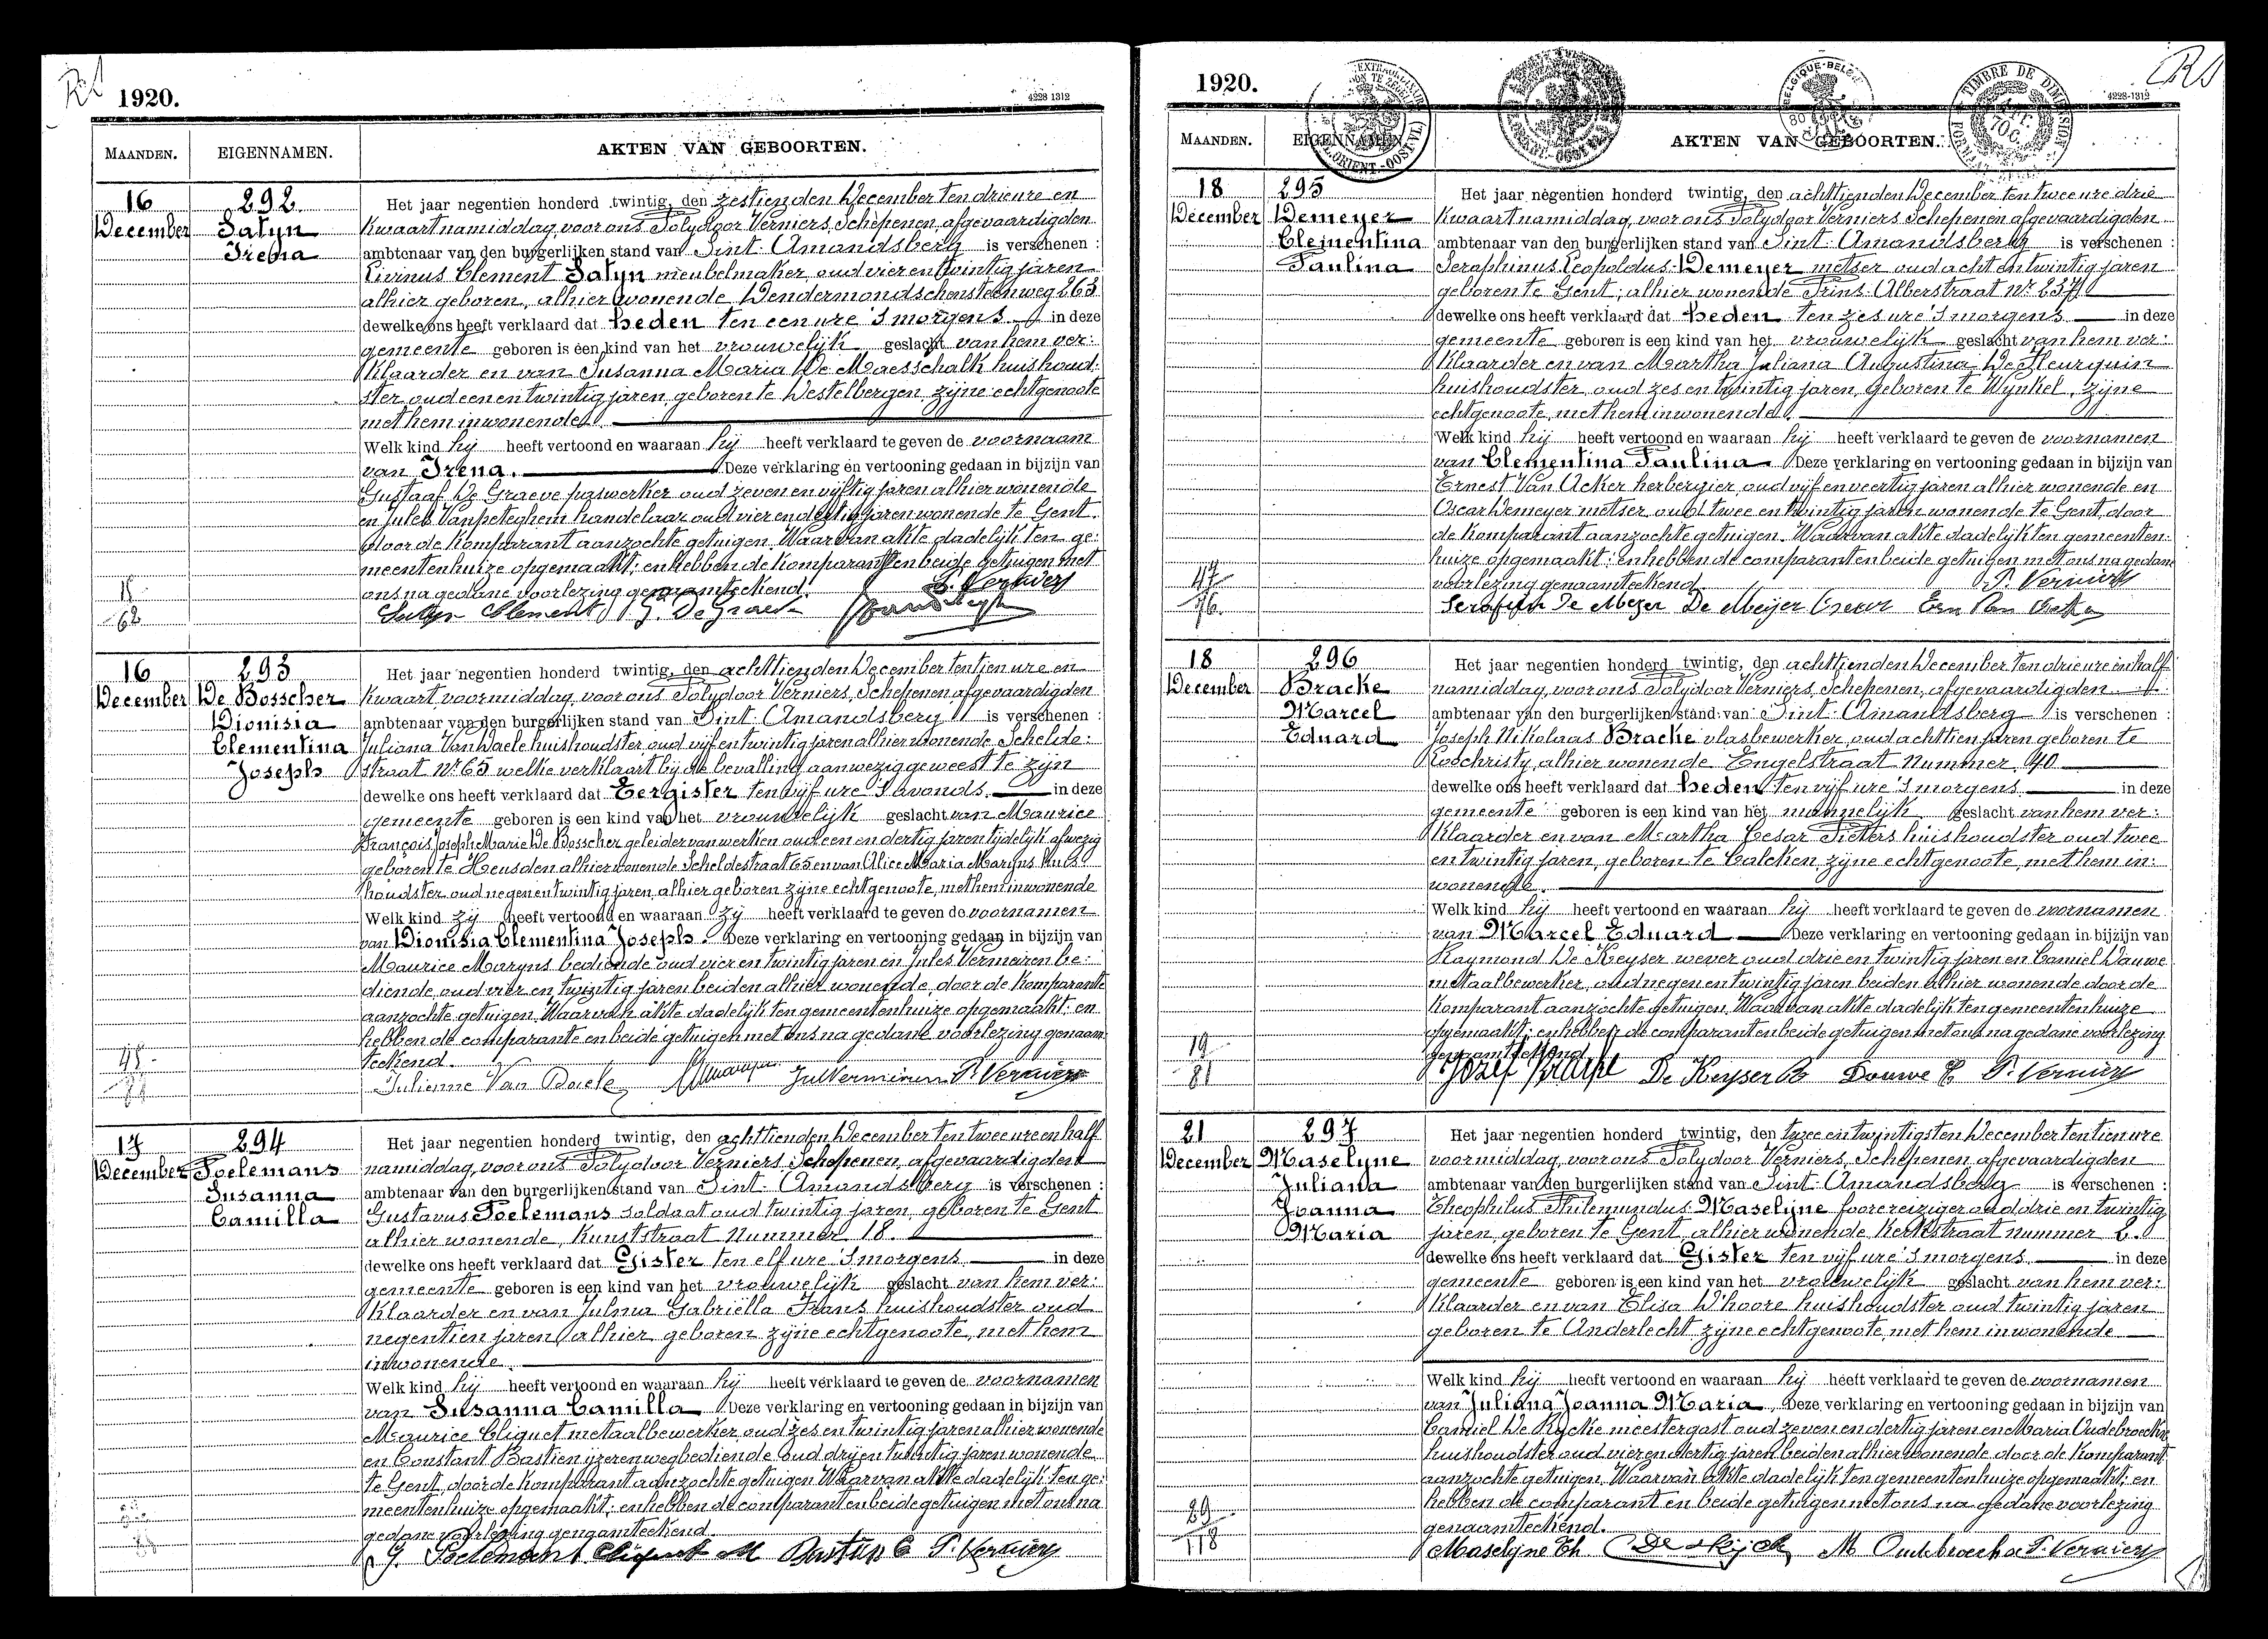 1920.
4228 1312
MAANDEN.
EIGENNAMEN.
AKTEN VAN GEBOORTEN.
16
December
292
Satyn
Irena
Het jaar negentien honderd twintig, den zestienden December ten drie ure en
kwaart namiddag, voor ons Polydoor Verniers, Schepenen, afgevaardigden
ambtenaar van den burgerlijken stand van Sint-Amandsberg is verschenen :
Livinus Clement Satyn meubelmaker, oud vier en twintig jaren
alhier geboren, alhier wonende Dendermondschensteenweg 263
dewelke ons heeft verklaard dat heden ten een ure 's morgens in deze
gemeente geboren is een kind van het vrouwelijk geslacht van hem ver:
klaarder en van Susanna Maria De Maesschalk huishoud:
ster oud een en twintig jaren, geboren te Destelbergen, zijne echtgenoote
met hem inwonende.
Welk kind hij heeft vertoond en waaraan hij heeft verklaard te geven de voornaam
van Irena. Deze verklaring en vertooning gedaan in bijzijn van
Gustaaf De Graeve paswerker oud zeven en vijftig jaren alhier wonende
en Jules Vanpeteghem handelaar oud vier en dertig jaren wonende te Gent,
door de komparant aanzochte getuigen. Waarvan akte dadelijk ten ge:
meentenhuize opgemaakt; en hebben de komparant en beide getuigen met
ons na gedane voorlezing genaamteekend.
P. Verniers
Satyn Clement G. De Graeve
18
62
16
December
293
De Bosscher
Dionisia
Clementina
Joseph
Het jaar negentien honderd twintig, den achttienden December ten tien ure en
kwaart voormiddag, voor ons Polydoor Verniers, Schepenen, afgevaardigden
ambtenaar van den burgerlijken stand van Sint-Amandsberg is verschenen :
Juliana Van Daele huishoudster oud vijf en twintig jaren alhier wonende Schelde:
straat Nr 65 welke verklaart bij de bevalling aanwezig geweest te zijn
dewelke ons heeft verklaard dat Eergister ten vijf ure 's avonds in deze
gemeente geboren is een kind van het vrouwelijk geslacht van Maurice
François Joseph Marie De Bosscher geleider van werken oud een en dertig jaren tijdelijk afwezig
geboren te Heusden alhier wonende Scheldestraat 65 en van Alice Maria Maryns huis:
houdster oud negen en twintig jaren, alhier geboren zijne echtgenoote, met hem inwonende
Welk kind zij heeft vertoond en waaraan zij heeft verklaard te geven de voornamen
van Dionisia Clementina Joseph. Deze verklaring en vertooning gedaan in bijzijn van
Maurice Maryns bediende oud vier en twintig jaren en Jules Vermeiren be:
diende, oud vier en twintig jaren beiden alhier wonende, door de komparante
aanzochte getuigen. Waarvan akte dadelijk ten gemeentenhuize opgemaakt; en
hebben de comparante en beide getuigen met ons na gedane voorlezing genaam:
teekend.
Julienne Van Daele P. Verniers
17
December
294
Poelemans
Susanna
Camilla
Het jaar negentien honderd twintig, den achttienden December ten twee ure en half
namiddag, voor ons Polydoor Verniers, Schepenen, afgevaardigden
ambtenaar van den burgerlijken stand van Sint-Amandsberg is verschenen :
Gustavus Poelemans soldaat oud twintig jaren, geboren te Gent
alhier wonende, Kunststraat Nummer 18.
dewelke ons heeft verklaard dat Gister ten elf ure 's morgens in deze
gemeente geboren is een kind van het vrouwelijk geslacht van hem ver:
klaarder en van Julma Gabriëlla Frans huishoudster oud
negentien jaren, alhier geboren zijne echtgenoote, met hem
inwonende.
Welk kind hij heeft vertoond en waaraan hij heeft verklaard te geven de voornamen
van Susanna Camilla Deze verklaring en vertooning gedaan in bijzijn van
Maurice Cliquet metaalbewerker, oud zes en twintig jaren alhier wonende
en Constant Bastien ijzerenwegbediende oud drij en twintig jaren wonende
te Gent, door de komparant aanzochte getuigen. Waarvan akte dadelijk ten ge:
meentenhuize opgemaakt; en hebben de comparant en beide getuigen met ons na
gedane voorlezing genaamteekend.
G. Poelemans Cliquet M Bastien C P. Verniers
1920.
4228-1312
MAANDEN.
EIGENNAMEN.
AKTEN VAN GEBOORTEN.
BELGIQUE-BELGIË
TIMBRE DE DIMENSION
18
December
295
Demeyer
Clementina
Paulina
Het jaar negentien honderd twintig, den achttienden December ten twee ure drie
kwaart namiddag, voor ons Polydoor Verniers, Schepenen, afgevaardigden
ambtenaar van den burgerlijken stand van Sint-Amandsberg is verschenen :
Seraphinus Leopoldus Demeyer metser oud acht en twintig jaren
geboren te Gent, alhier wonende Prins Alberstraat Nr 237
dewelke ons heeft verklaard dat heden ten zes ure 's morgens in deze
gemeente geboren is een kind van het vrouwelijk geslacht van hem ver:
klaarder en van Martha Juliana Augustina De Fleurquin
huishoudster, oud zes en twintig jaren, geboren te Wynkel, zijne
echtgenoote, met hem inwonende.
Welk kind hij heeft vertoond en waaraan hij heeft verklaard te geven de voornamen
van Clementina Paulina Deze verklaring en vertooning gedaan in bijzijn van
Ernest Van Acker herbergier, oud vijf en veertig jaren alhier wonende en
Oscar Demeyer metser, oud twee en twintig jaren wonende te Gent, door
de komparant aanzochte getuigen. Waarvan akte dadelijk ten gemeenten:
huize opgemaakt; en hebben de comparant en beide getuigen met ons na gedane
voorlezing genaamteekend.
P. Verniers
Serafin De Meyer De Meijer Oscar Ern Van Acker
47
76
18
December
296
Bracke
Marcel
Eduard
Het jaar negentien honderd twintig, den achttienden December ten drie ure en half
namiddag, voor ons Polydoor Verniers, Schepenen, afgevaardigden
ambtenaar van den burgerlijken stand van Sint-Amandsberg is verschenen :
Joseph Nikolaas Bracke vlasbewerker, oud achttien jaren geboren te
Loochristy, alhier wonende Engelstraat Nummer 40
dewelke ons heeft verklaard dat heden ten vijf ure 's morgens in deze
gemeente geboren is een kind van het mannelijk geslacht van hem ver:
klaarder en van Martha Cesar Pieters huishoudster oud twee
en twintig jaren, geboren te Calcken, zijne echtgenoote, met hem in:
wonende.
Welk kind hij heeft vertoond en waaraan hij heeft verklaard te geven de voornamen
van Marcel Eduard Deze verklaring en vertooning gedaan in bijzijn van
Raymond De Keyser wever oud drie en twintig jaren en Camiel Dauwe
metaalbewerker, oud negen en twintig jaren beiden alhier wonende door de
komparant aanzochte getuigen. Waarvan akte dadelijk ten gemeentenhuize
opgemaakt; en hebben de comparant en beide getuigen met ons na gedane voorlezing
genaamteekend.
Jozef Bracke De Keyser R Douwe C P. Verniers
19
81
21
December
297
Maselyne
Juliana
Joanna
Maria
Het jaar negentien honderd twintig, den twee en twintigsten December ten tien ure
voormiddag, voor ons Polydoor Verniers, Schepenen, afgevaardigden
ambtenaar van den burgerlijken stand van Sint-Amandsberg is verschenen :
Theophilus Philemundus Maselyne foorereiziger oud drie en twintig
jaren, geboren te Gent, alhier wonende Kerkstraat nummer 2.
dewelke ons heeft verklaard dat Gister ten vijf ure 's morgens in deze
gemeente geboren is een kind van het vrouwelijk geslacht van hem ver:
klaarder en van Elisa D'hoore huishoudster oud twintig jaren
geboren te Anderlecht zijne echtgenoote, met hem inwonende
Welk kind hij heeft vertoond en waaraan hij heeft verklaard te geven de voornamen
van Juliana Joanna Maria. Deze verklaring en vertooning gedaan in bijzijn van
Camiel De Rycke meestergast oud zeven en dertig jaren en Maria Oudebroeckx
huishoudster oud vier en dertig jaren beiden alhier wonende door de komparant
aanzochte getuigen. Waarvan akte dadelijk ten gemeentenhuize opgemaakt; en
hebben de comparant en beide getuigen met ons na gedane voorlezing
genaamteekend.
Maselyne Th. De Rijck M P. Verniers
29
118